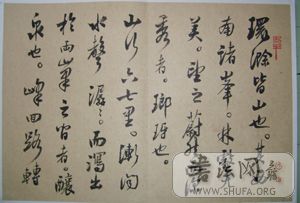 環滁皆山也。其
南諸峯。林壑尤
美。望之蔚然
秀者。瑯琊也。
山行六七里。漸聞
水聲潺潺。而瀉出
於兩峯之間者。釀
泉也。峰回路轉
WWW.SHUFA.ORG